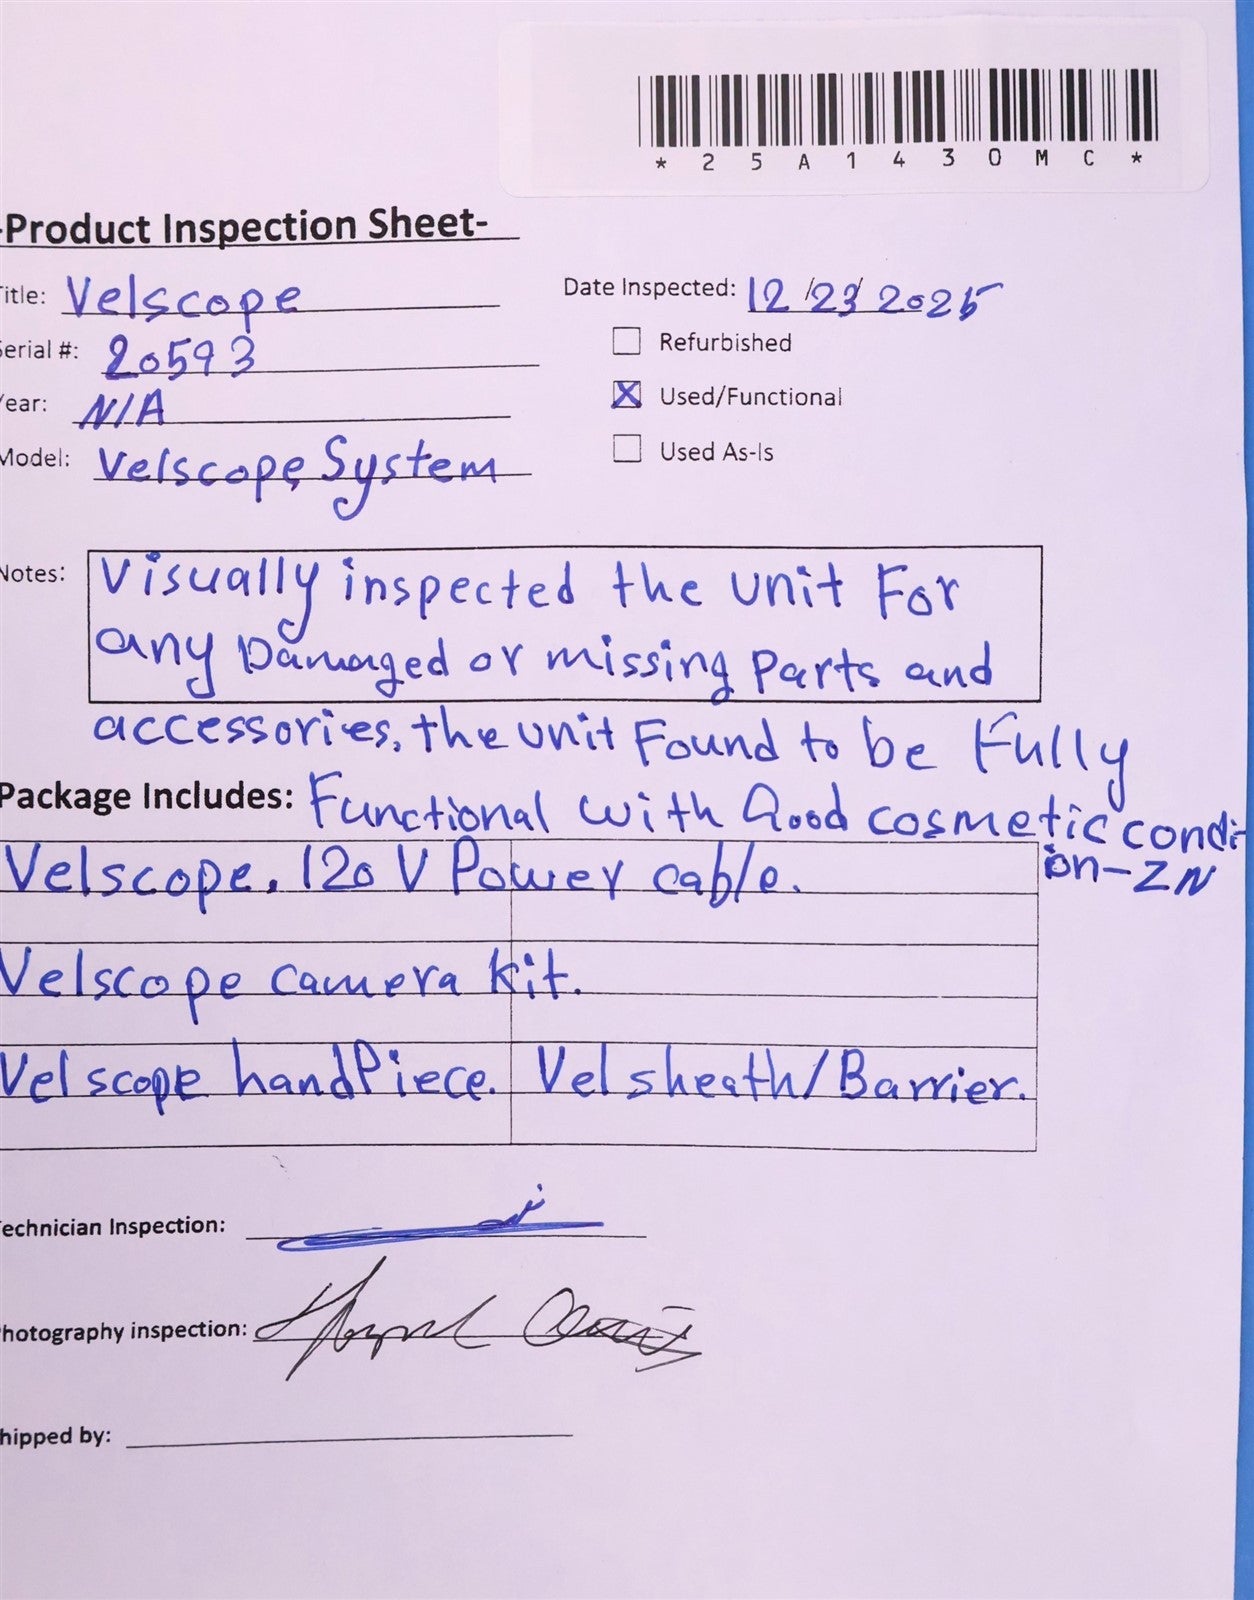 * 2 5 A 1 4 3 0 M C *
-Product Inspection Sheet-
itle: Velscope
Date Inspected: 12/23/2025
erial #: 20593
Refurbished
ear: N/A
X Used/Functional
Model: Velscope System
Used As-Is
Notes: Visually inspected the unit For
any Damaged or missing Parts and
accessories, the unit Found to be Fully
Package Includes: Functional with Good cosmetic condi
on-ZN
Velscope, 120 V Power cable.
Velscope camera kit.
Velscope handPiece. Vel sheath/Barrier.
echnician Inspection:
hotography inspection:
hipped by: